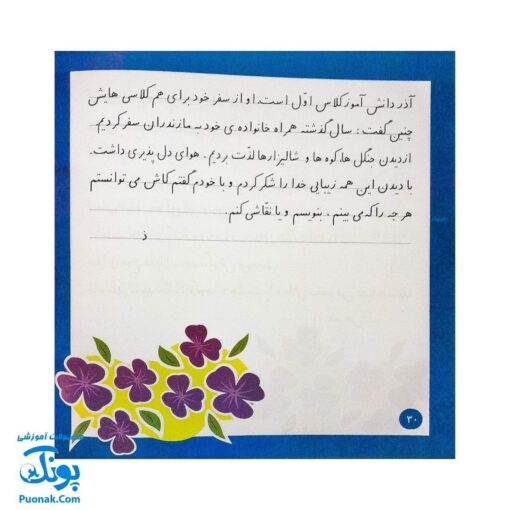 آذر دانش آموز کلاس اوّل است. او از سفر خود برای هم کلاسی هایش
چنین گفت : سال گذشته همراه خانواده ی خود به مازندران سفر کردیم.
از دیدن جنگل ها، کوه ها و شالیزارها لذّت بردیم. هوای دل پذیری داشت.
با دیدن این همه زیبایی خدا را شکر کردم و با خودم گفتم کاش می توانستم
هر چه را که می بینم ، بنویسم و یا نقّاشی کنم.
ذ
۳۰
محصولات آموزشی
پونک
Puonak.Com